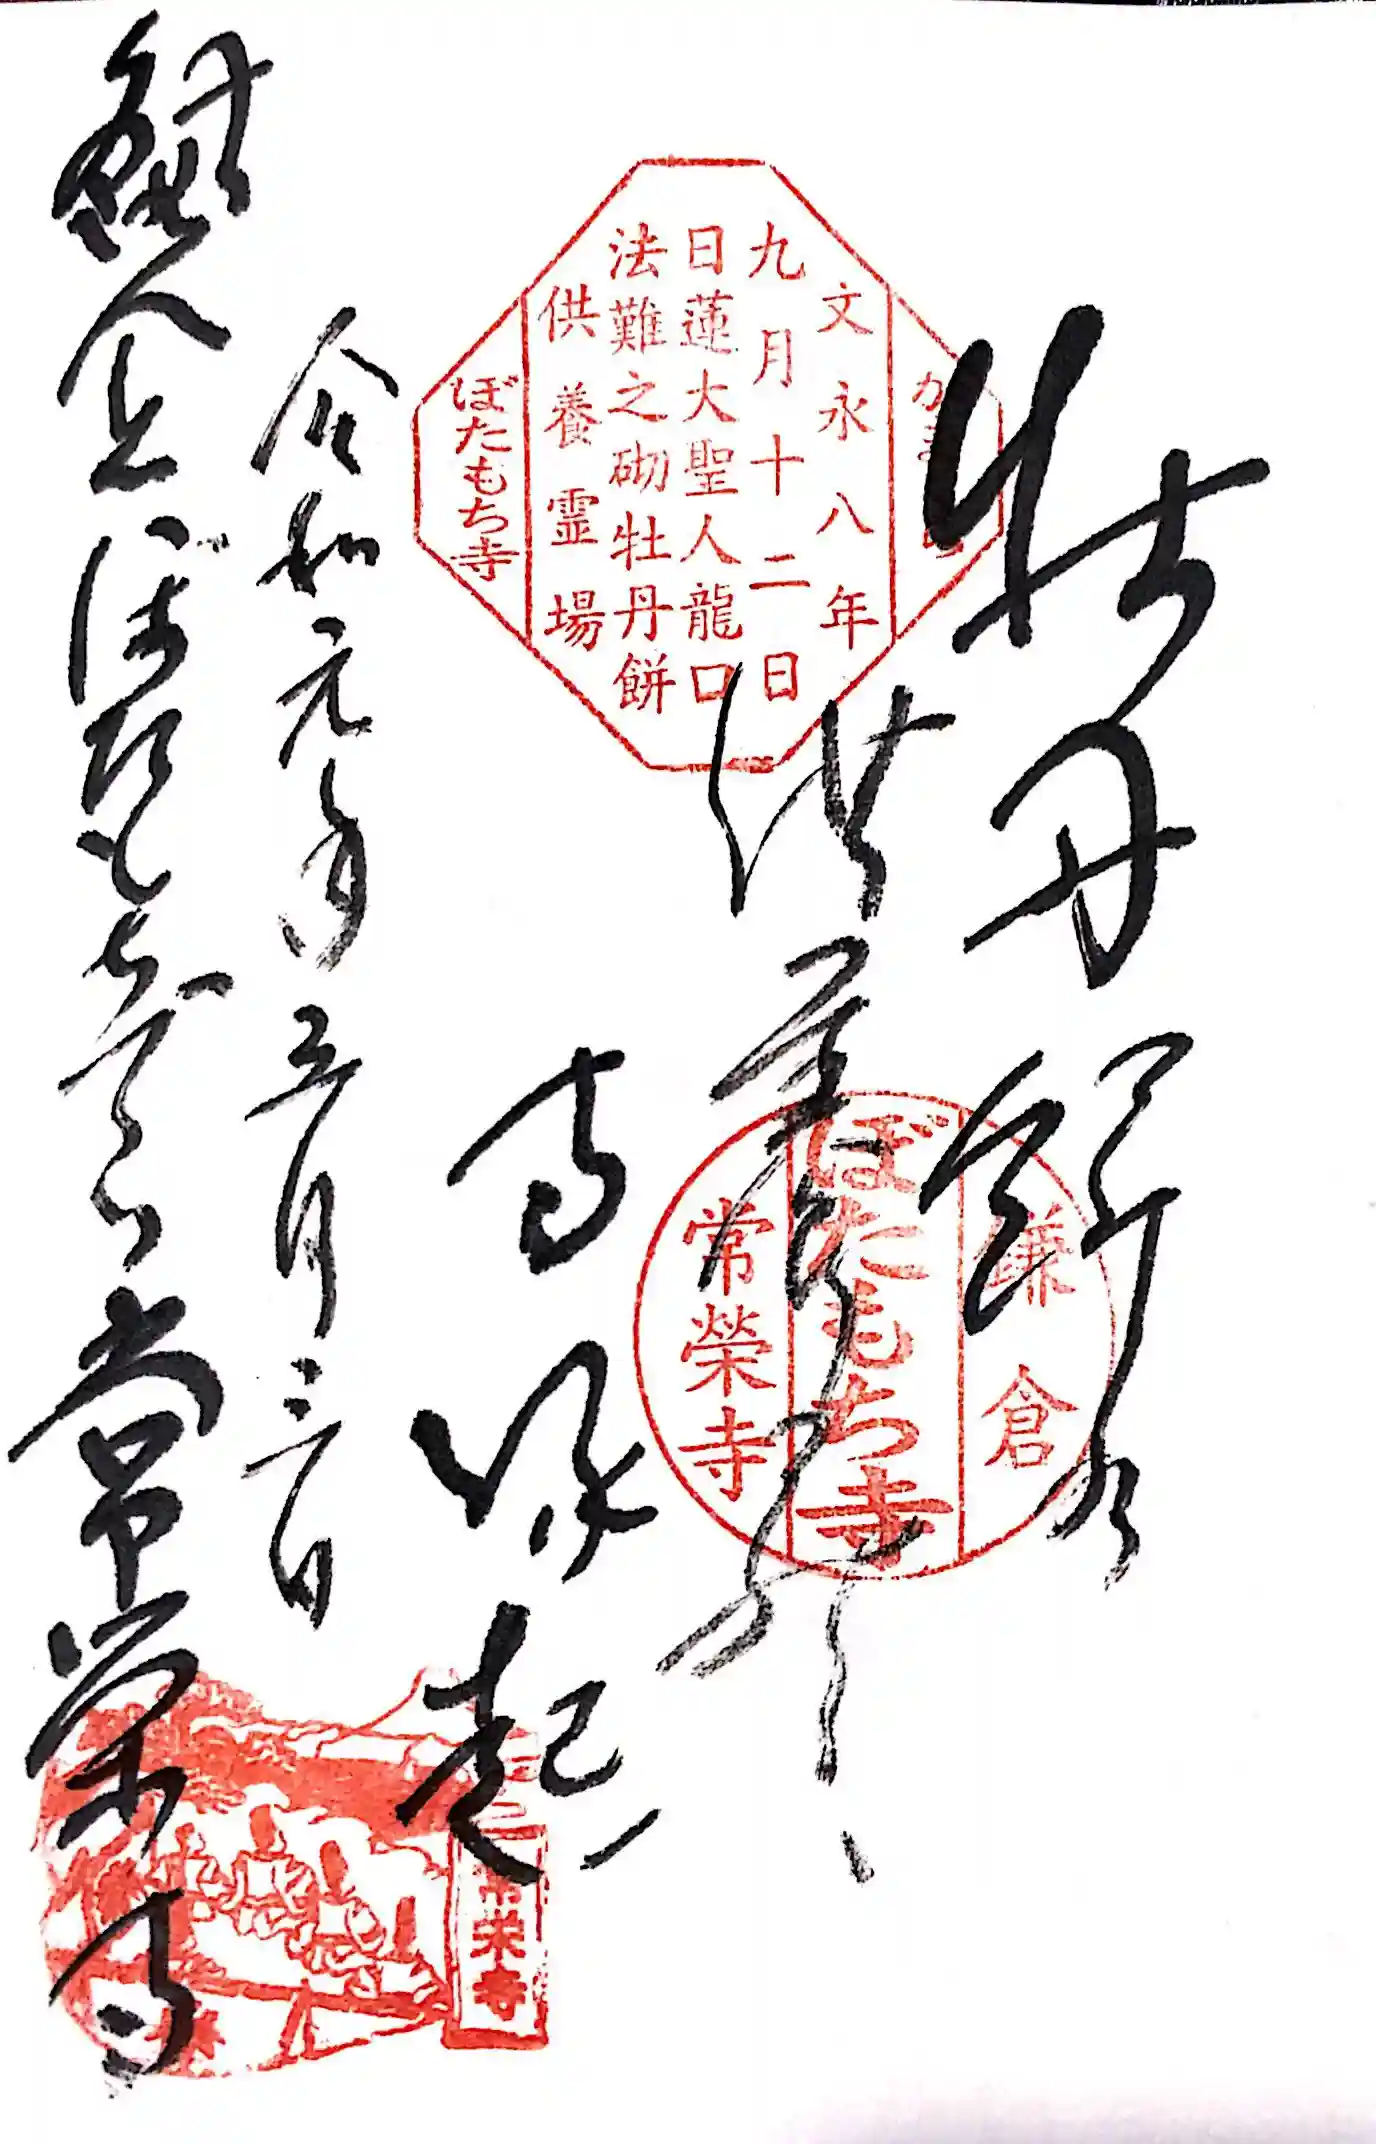 牡丹餅
供養
寺縁起
令和元年五月三日
鎌倉
ぼたもち寺
常栄寺
文永八年
九月十二日
日蓮大聖人龍口
法難之砌牡丹餅
供養霊場
ぼたもち寺
鎌倉
ぼたもち寺
常榮寺
常栄寺